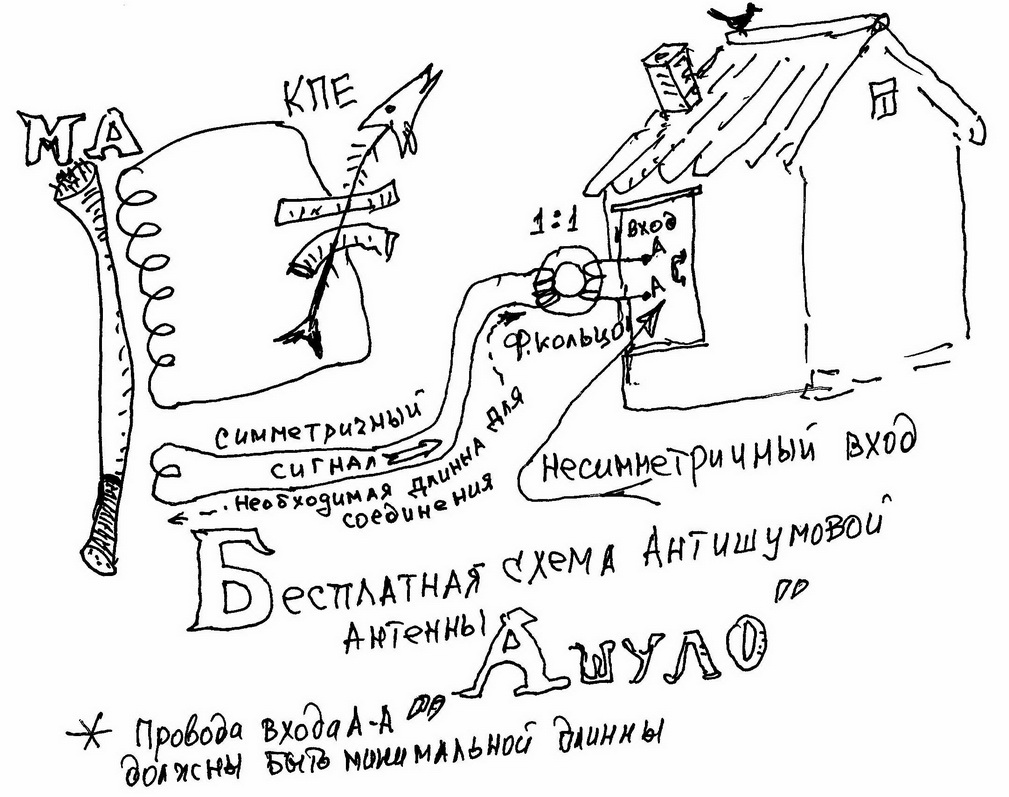 МА
КПЕ
1:1
ВХОД
А
А
Ф.КОЛЬЦО
СИММЕТРИЧНЫЙ
СИГНАЛ
НЕОБХОДИМАЯ ДЛИННА ДЛЯ
СОЕДИНЕНИЯ
НЕСИММЕТРИЧНЫЙ ВХОД
БЕСПЛАТНАЯ СХЕМА АНТИШУМОВОЙ
АНТЕННЫ "АШУЛО"
* ПРОВОДА ВХОДА А-А
ДОЛЖНЫ БЫТЬ МИНИМАЛЬНОЙ ДЛИННЫ